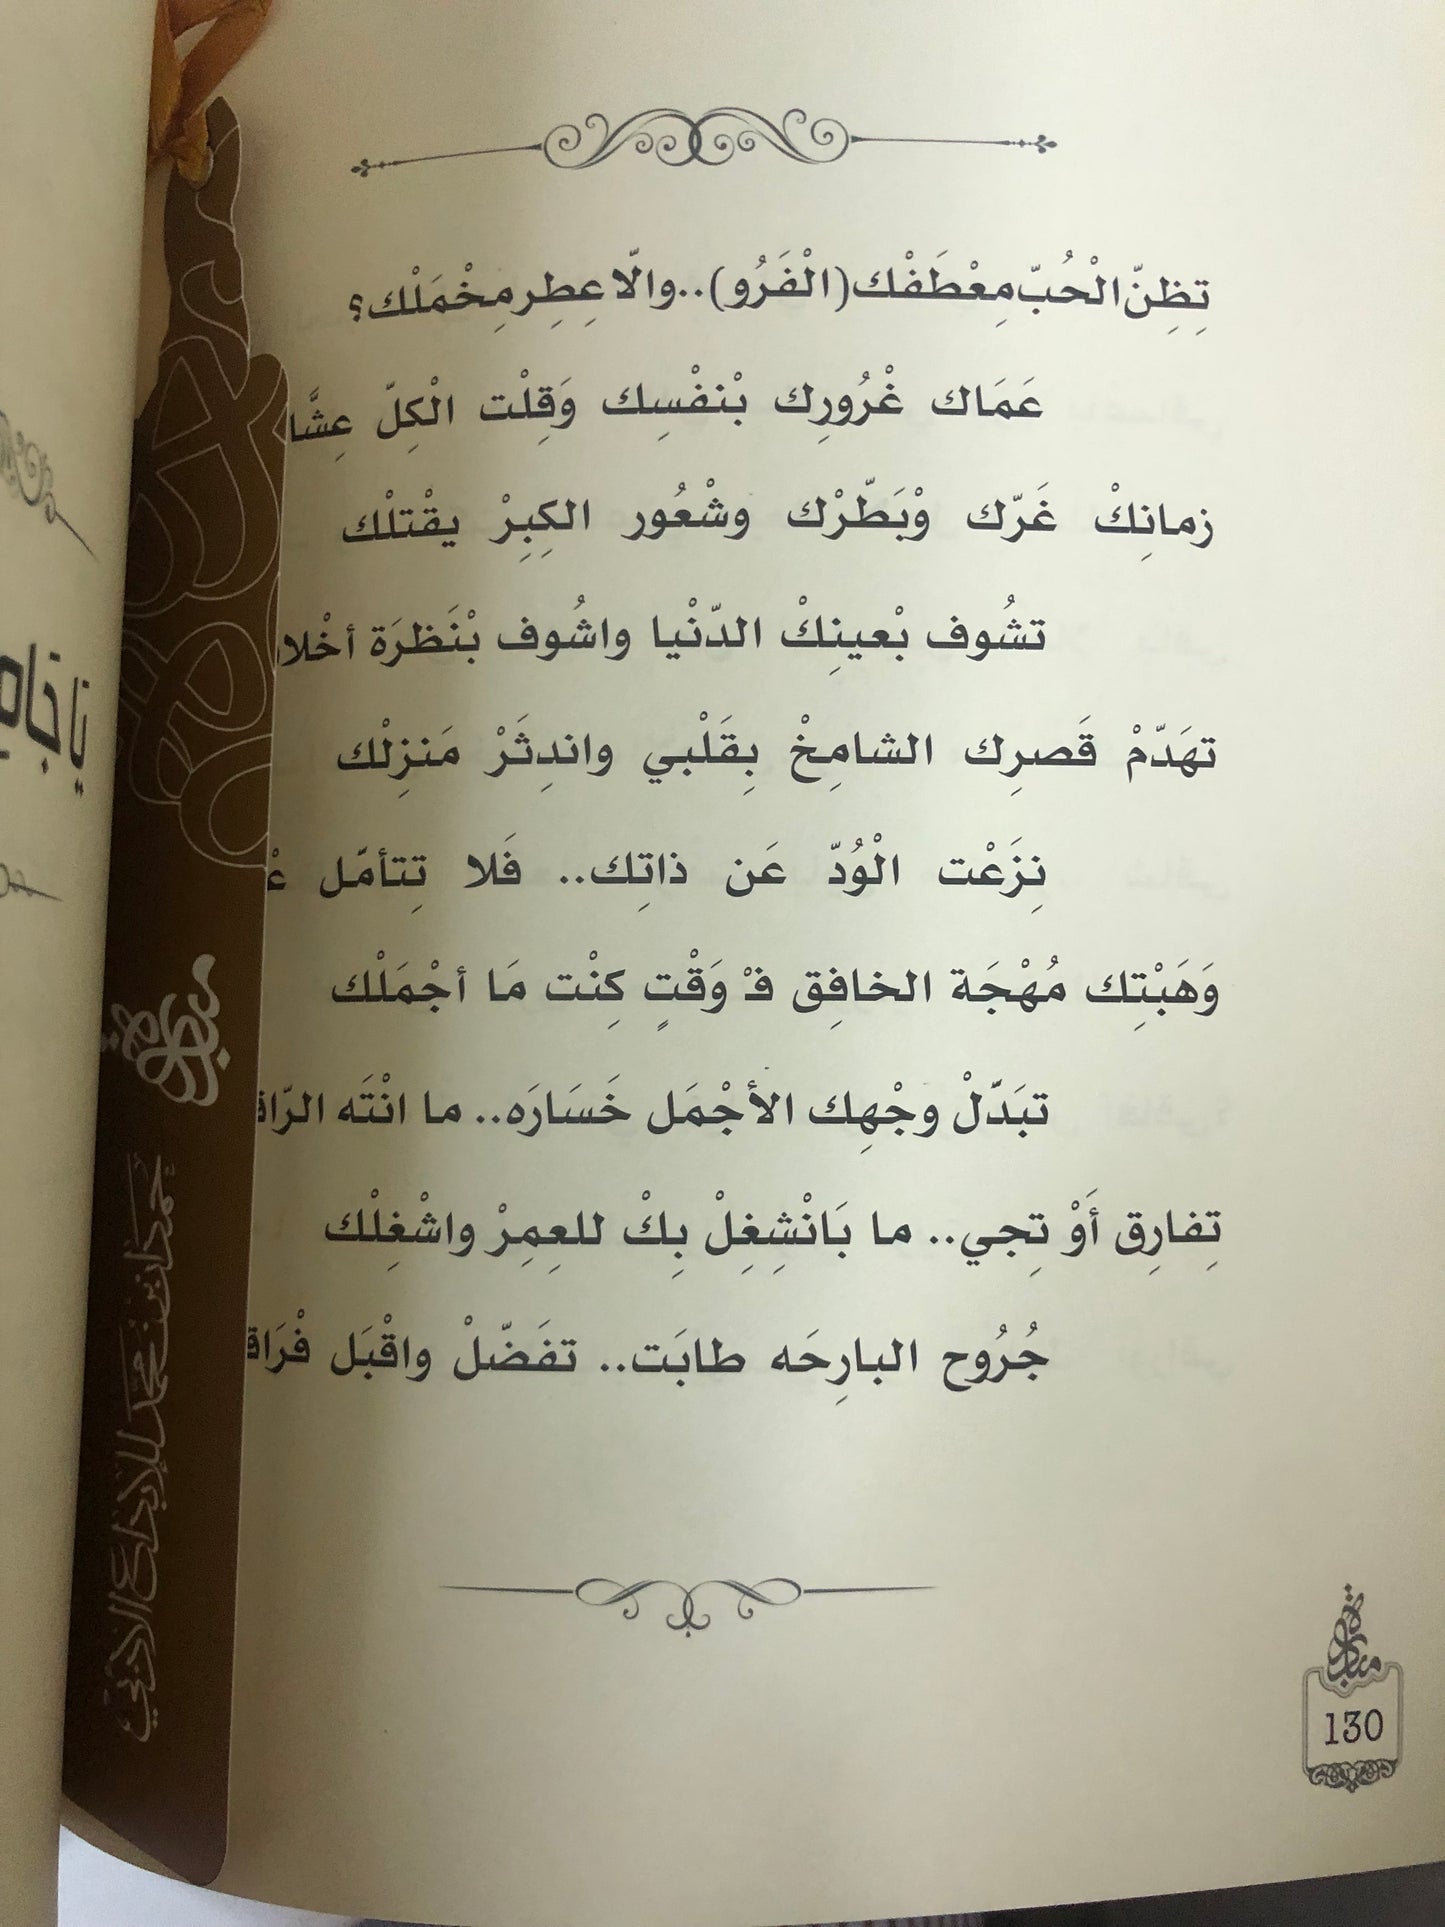 تِظِنّ الْحُبّ مِعْطَفْك (الْفَرُو).. والّا عِطِر مِخْمَلْك؟
عَمَاك غْرُورِك بْنفْسِك وَقِلْت الْكِلّ
زمانِكْ غَرّك وْبَطّرْك وشْعُور الكِبِرْ يقْتلْك
تشُوف بْعينِكْ الدّنْيا واشُوف بْنَظرَة
تهَدّمْ قَصرِك الشامِخْ بِقَلْبي واندِثَرْ مَنزِلْك
نِزَعْت الْوُدّ عَن ذاتِك.. فَلا تِتأمّل
وَهَبْتِك مُهْجَة الخافِق فـْ وَقْتٍ كِنْت مَا أجْمَلْك
تبَدّلْ وجْهِك الأجْمَل خَسَارَه.. ما انْتَه
تِفارِق أَوْ تِجي.. ما بَانْشِغِلْ بِكْ للعِمِرْ واشْغِلْك
جُرُوح البارِحَه طابَت.. تفَضّلْ واقْبَل
130